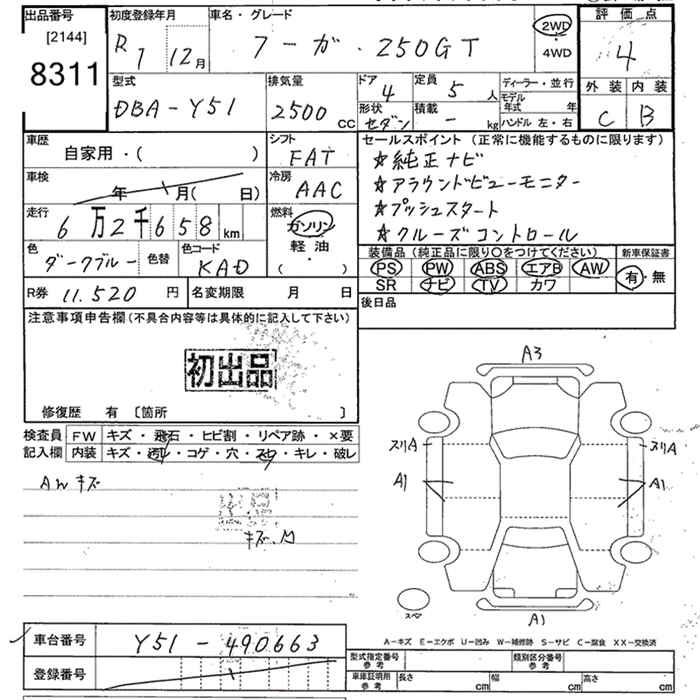 出品番号 初度登録年月 車名・グレード 評価点
[2144] R1 12月 フーガ・250GT 2WD・4WD 4
8311
型式 排気量 ドア 定員 ディーラー・並行 外装 内装
DBA-Y51 2500cc 4 5人 モデル年式 年 C B
形状 積載 ハンドル 左・右
セダン - kg
車歴 シフト セールスポイント (正常に機能するものに限ります)
自家用・( ) FAT ☆純正ナビ
車検 冷房 ☆アラウンドビューモニター
年 月( 日) AAC ☆プッシュスタート
走行 燃料 ☆クルーズコントロール
6万2千658km ガソリン
軽油・( )
色 色替 色コード 装備品 (純正品に限り○をつけてください) 新車保証書
ダークブルー KAD PS PW ABS エアB AW 有・無
SR ナビ TV カワ
R券 11.520円 名変期限 月 日 後日品
注意事項申告欄(不具合内容等は具体的に記入して下さい)
初出品
修復歴 有 [箇所 ]
検査員 FW キズ・飛石・ヒビ割・リペア跡・×要
記入欄 内装 キズ・汚れ・コゲ・穴・スレ・キレ・破レ
AWキズ
キズ.M
A3
スリA スリA
A1 A1
スペア
A1
A-キズ E-エクボ U-凹み W-補修跡 S-サビ C-腐食 XX-交換済
車台番号 Y51-490663
登録番号
型式指定番号 参考 類別区分番号 参考
車庫証明用 参考 長さ cm 幅 cm 高さ cm